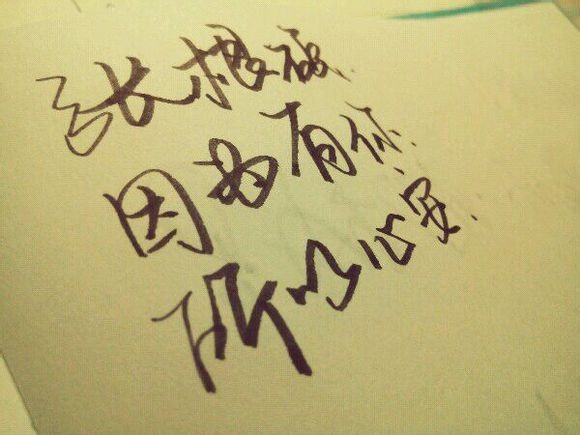 张根硕
因为有你
所以心安